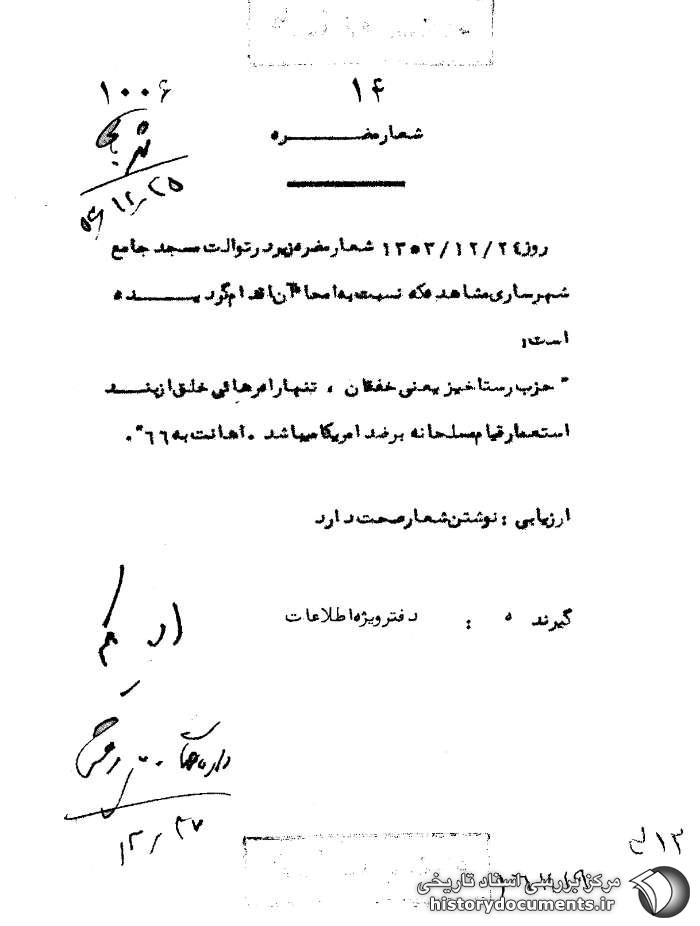 ۱۴
۱۰۰۶
شعار مضــــره
۲۵/۱۲/۵۳
روز ۱۳۵۳/۱۲/۲٤ شعار مضره زیر در توالت مسجد جامع
شهر ساری مشاهده که نسبت به امحا آن اقدام گردیـــده
است:
" حزب رستاخیز یعنی خفقان ، تنها راه رهائی خلق از بنـــد
استعمار قیام مسلحانه بر ضد امریکا میباشد . اهانت به ٦٦ ".
ارزیابی : نوشتن شعار صحت دارد
گیرنده : دفتر ویژه اطلاعات
۱۲/۲۷
۱۲
مرکز بررسی اسناد تاریخی
historydocuments.ir